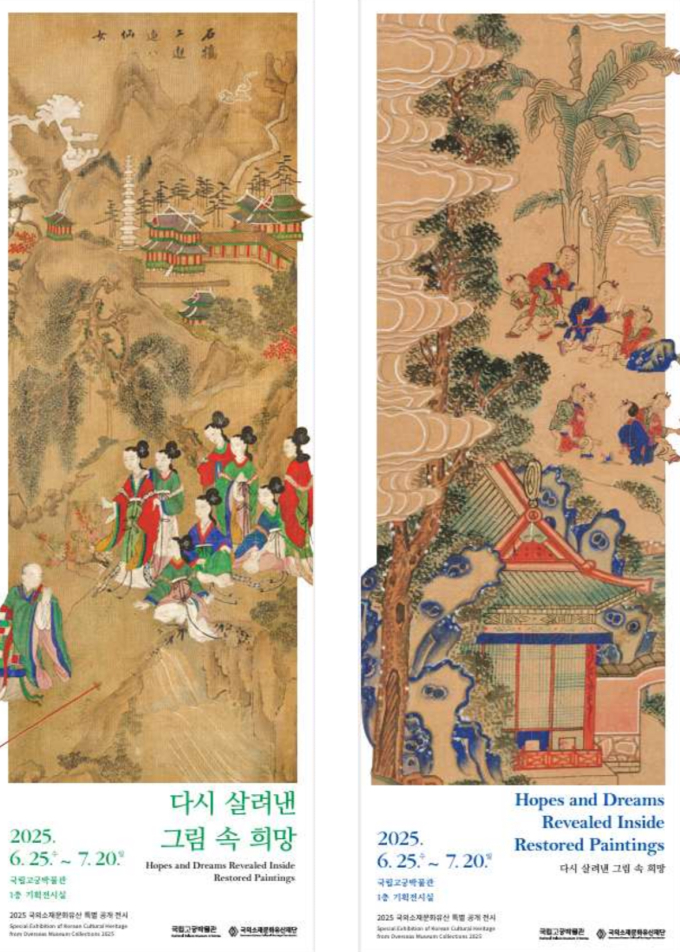 石橋
上迎
迎八
仙
女
다시 살려낸
그림 속 희망
Hopes and Dreams Revealed Inside
Restored Paintings
2025.
6. 25.수 ~ 7. 20.일
국립고궁박물관
1층 기획전시실
2025 국외소재문화유산 특별 공개 전시
Special Exhibition of Korean Cultural Heritage
from Overseas Museum Collections 2025
국립고궁박물관
국외소재문화유산재단
Hopes and Dreams
Revealed Inside
Restored Paintings
다시 살려낸 그림 속 희망
2025.
6. 25.수 ~ 7. 20.일
국립고궁박물관
1층 기획전시실
2025 국외소재문화유산 특별 공개 전시
Special Exhibition of Korean Cultural Heritage
from Overseas Museum Collections 2025
국립고궁박물관
국외소재문화유산재단